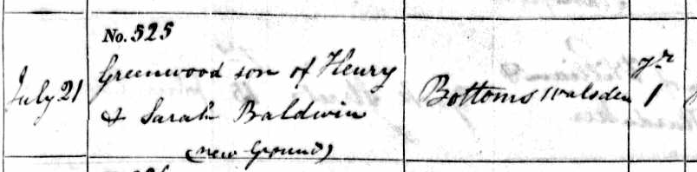 No. 525
July 21
Greenwood son of Henry
& Sarah Baldwin
(new Ground)
Bottoms Walsden
yr
1